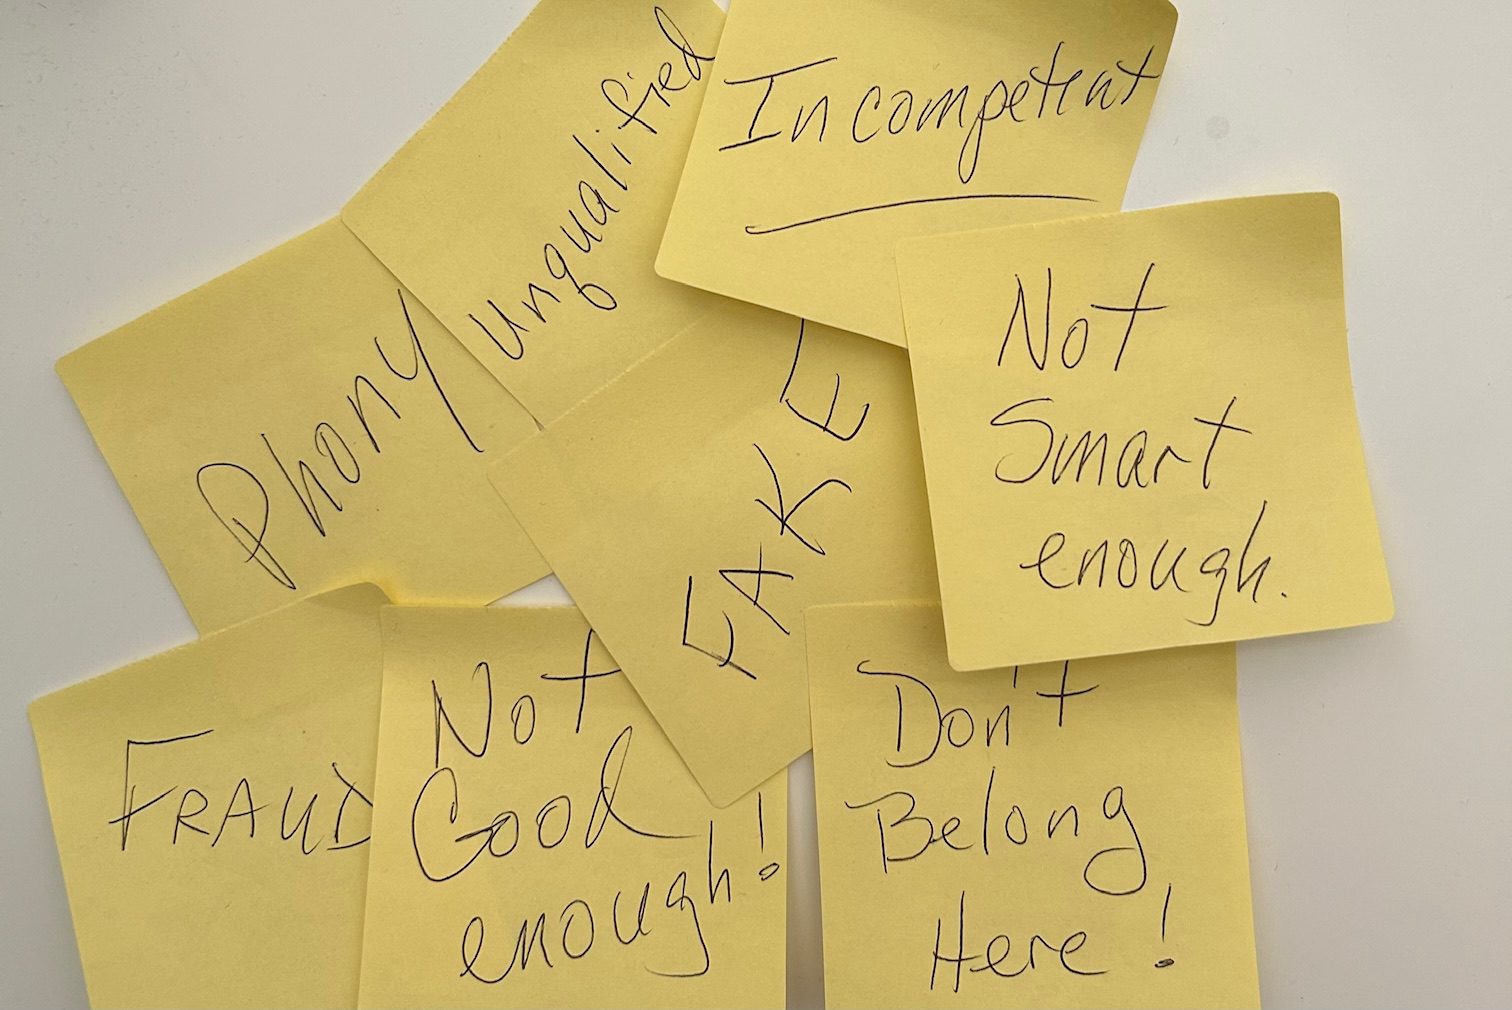 Unqualified
Incompetent
Phony
FAKE
Not
Smart
enough.
FRAUD
Not
Good
enough!
Don't
Belong
Here!